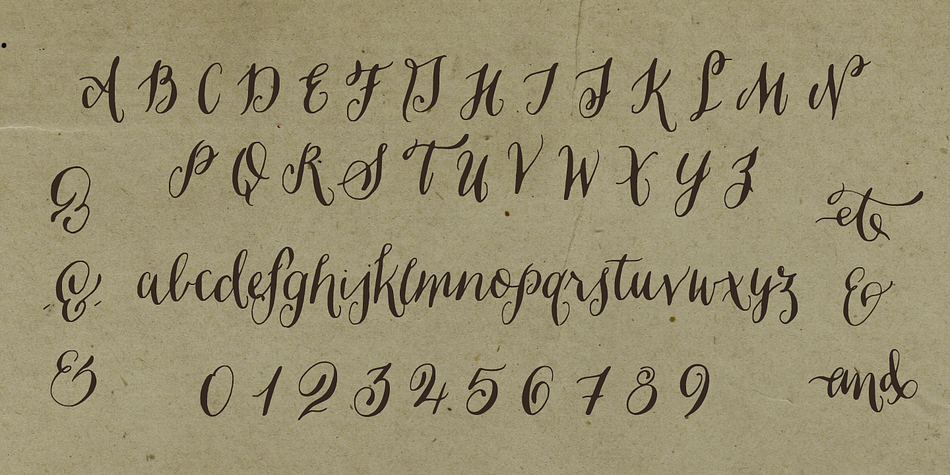 A B C D E F G H I J K L M N
P Q R S T U V W X Y Z
et
abcdefghijklmnopqrstuvwxyz
& &
& 0 1 2 3 4 5 6 7 8 9 and